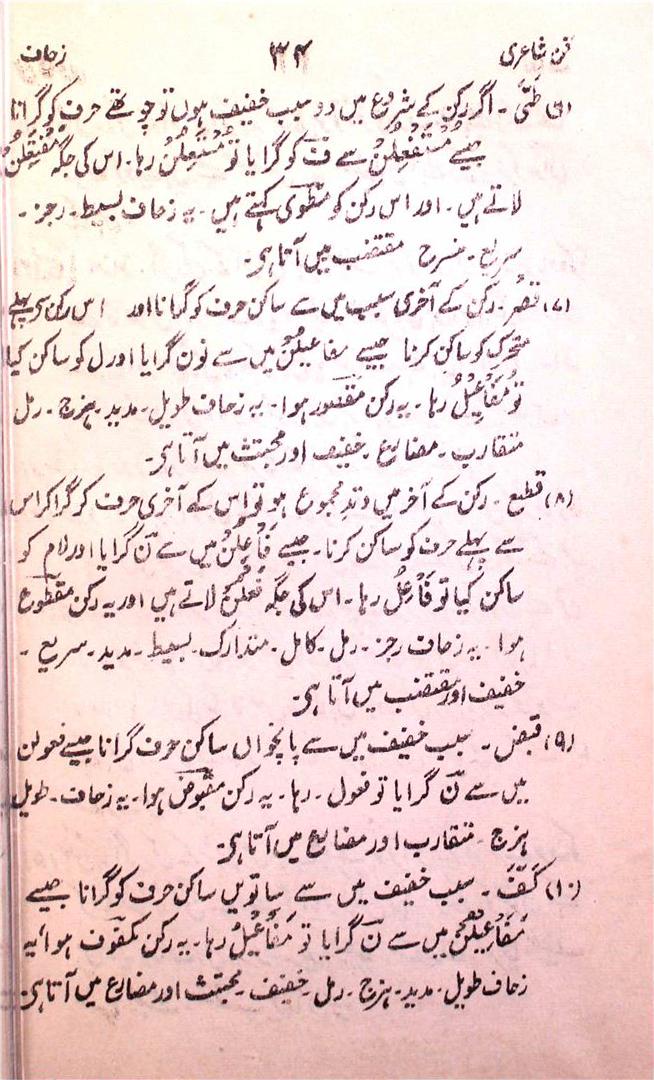 فن شاعری ۳۴ زحاف
(۶) طَیّ۔ اگر رکن کے شروع میں دو سبب خفیف ہوں تو چوتھے حرف کو گرانا
جیسے مُسْتَفْعِلُنْ سے ف کو گرایا تو مُسْتَعِلُنْ رہا۔ اس کی جگہ مُفْتَعِلُنْ
لاتے ہیں۔ اور اس رکن کو مطوی کہتے ہیں۔ یہ زحاف بسیط۔ رجز۔
سریع۔ منسرح مقتضب میں آتا ہی۔
(۷) قصر۔ رکن کے آخری سبب میں سے ساکن حرف کو گرانا اور اس رکن سے پہلے
متحرک کو ساکن کرنا جیسے مفاعیلن میں سے نون گرایا اور ل کو ساکن کیا
تو مَفَاعِیْلْ رہا۔ یہ رکن مقصور ہوا۔ یہ زحاف طویل۔ مدید۔ ہزج۔ رمل
متقارب۔ مضارع۔ خفیف اور مجتث میں آتا ہی۔
(۸) قطع۔ رکن کے آخر میں وتد مجموع ہو تو اس کے آخری حرف کر گرا کر اس
سے پہلے حرف کو ساکن کرنا۔ جیسے فَاعِلُنْ میں سے ن گرایا اور لام کو
ساکن کیا تو فَاعِلْ رہا۔ اس کی جگہ فَعْلُنْ لاتے ہیں اور یہ رکن مقطوع
ہوا۔ یہ زحاف رجز۔ رمل۔ کامل۔ متدارک۔ بسیط۔ مدید۔ سریع۔
خفیف اور مقتضب میں آتا ہی۔
(۹) قبض۔ سبب خفیف میں سے پانچواں ساکن حرف گرانا جیسے فعولن
میں سے ن گرایا تو فعول۔ رہا۔ یہ رکن مقبوض ہوا۔ یہ زحاف۔ طویل
ہزج۔ متقارب اور مضارع میں آتا ہی۔
(۱۰) کَفّ۔ سبب خفیف میں سے ساتویں ساکن حرف کو گرانا جیسے
مَفَاعِیْلُنْ میں سے ن گرایا تو مَفَاعِیْلُ رہا۔ یہ رکن مکفوف ہوا، یہ
زحاف طویل۔ مدید۔ ہزج۔ رمل۔ خفیف۔ مجتث اور مضارع میں آتا ہی۔